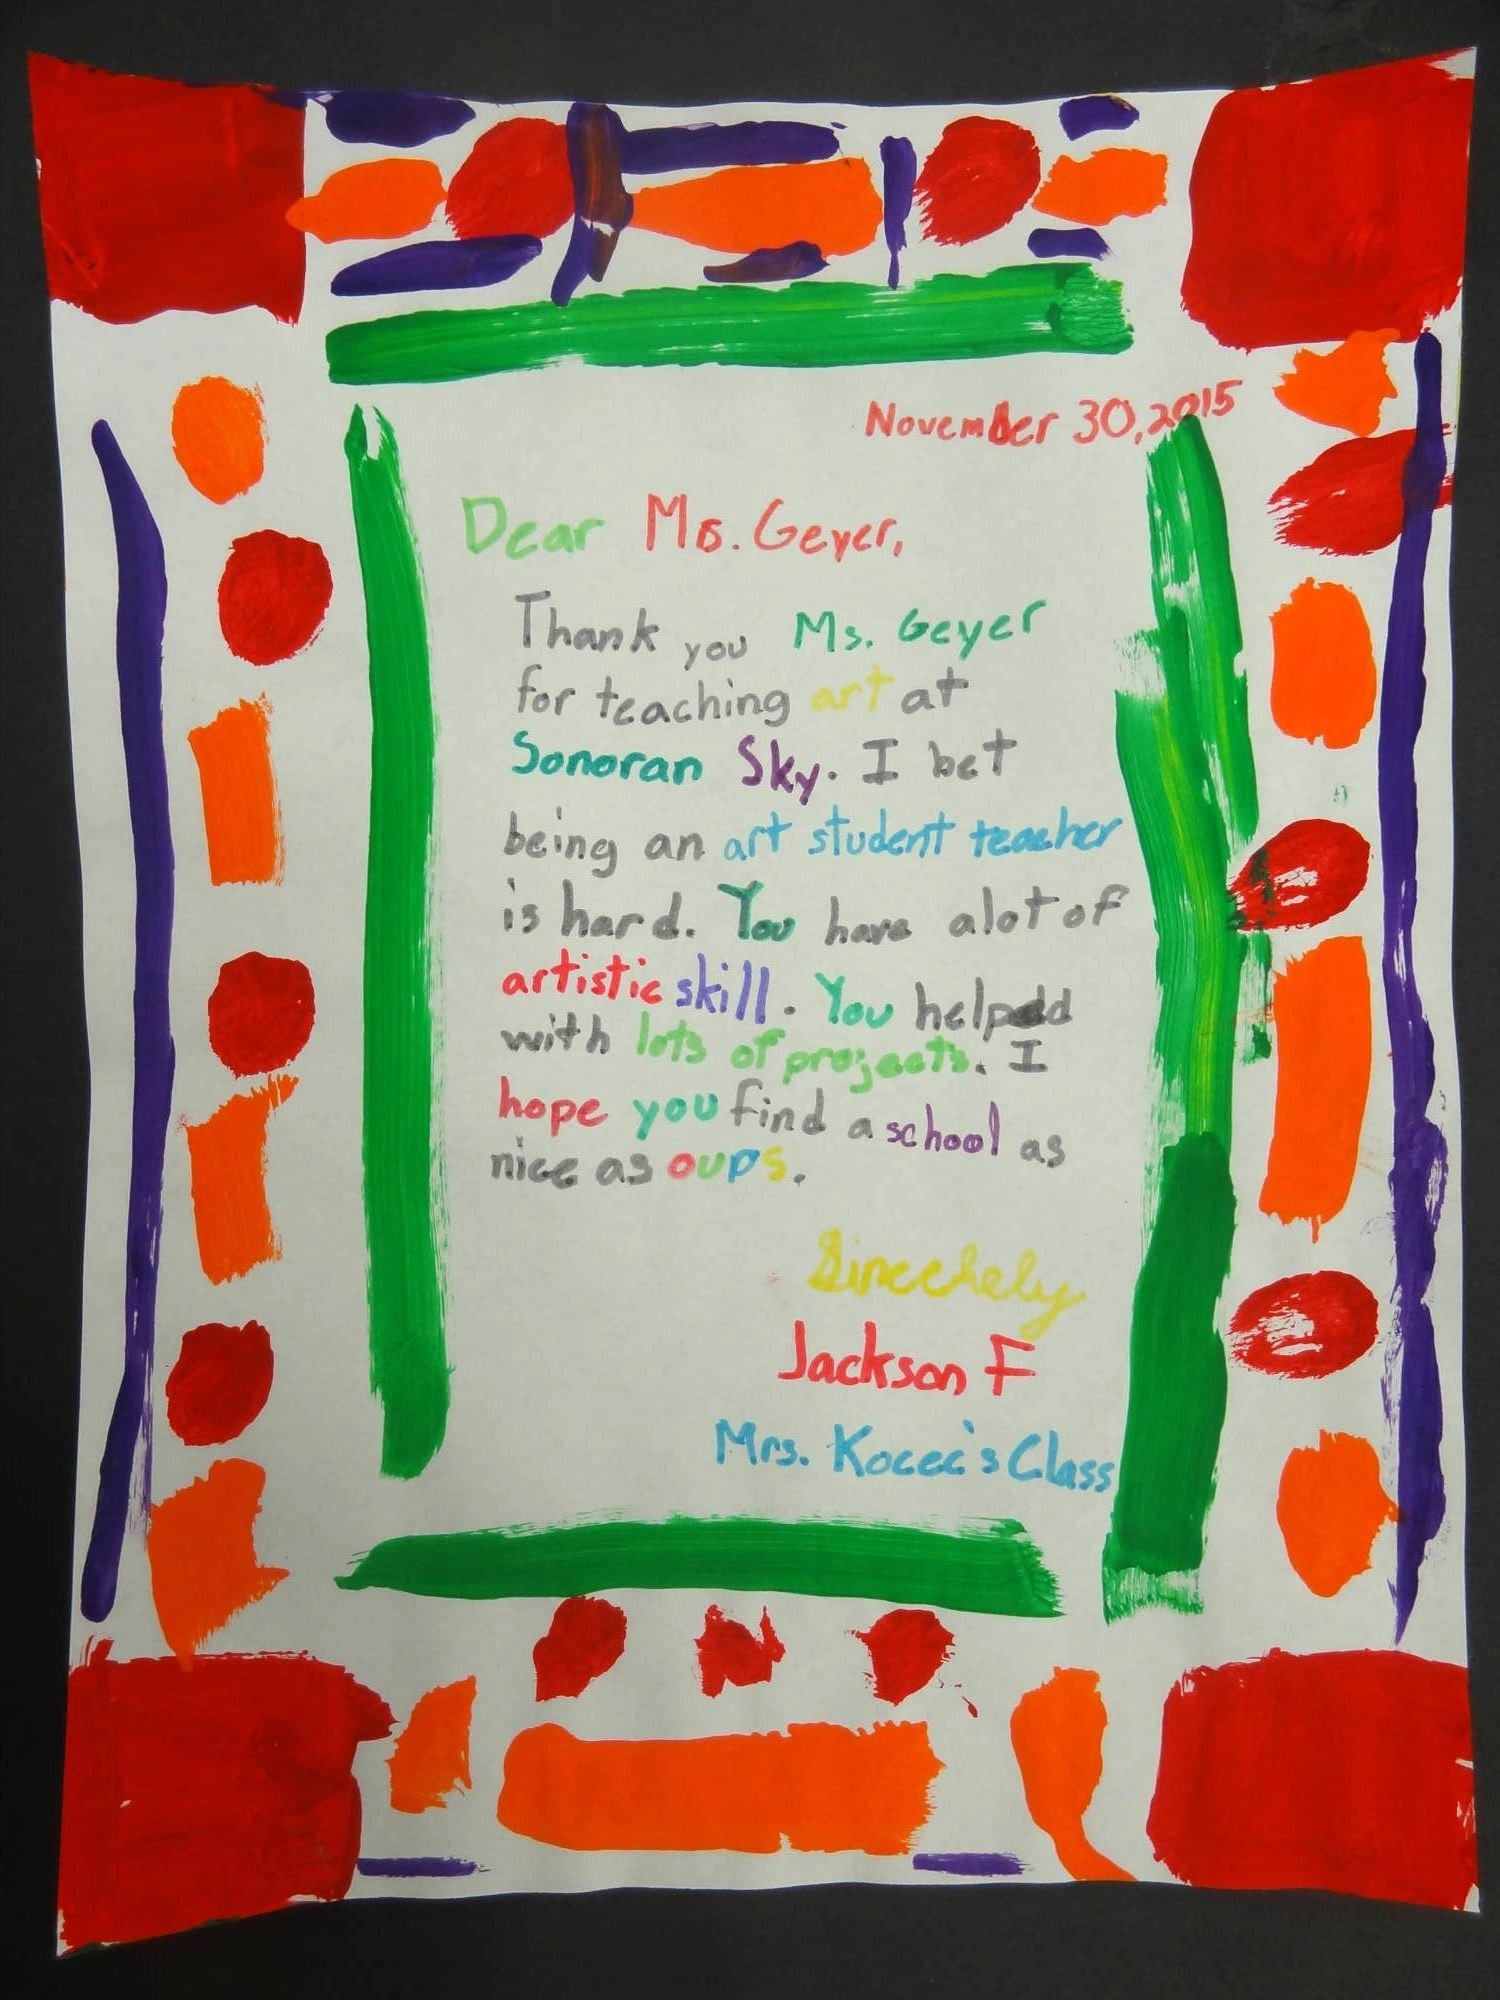 November 30, 2015
Dear Ms. Geyer,
Thank you Ms. Geyer
for teaching art at
Sonoran Sky. I bet
being an art student teacher
is hard. You have alot of
artistic skill. You helped
with lots of projects. I
hope you find a school as
nice as oups.
Sincehely
Jackson F
Mrs. Kocec's Class